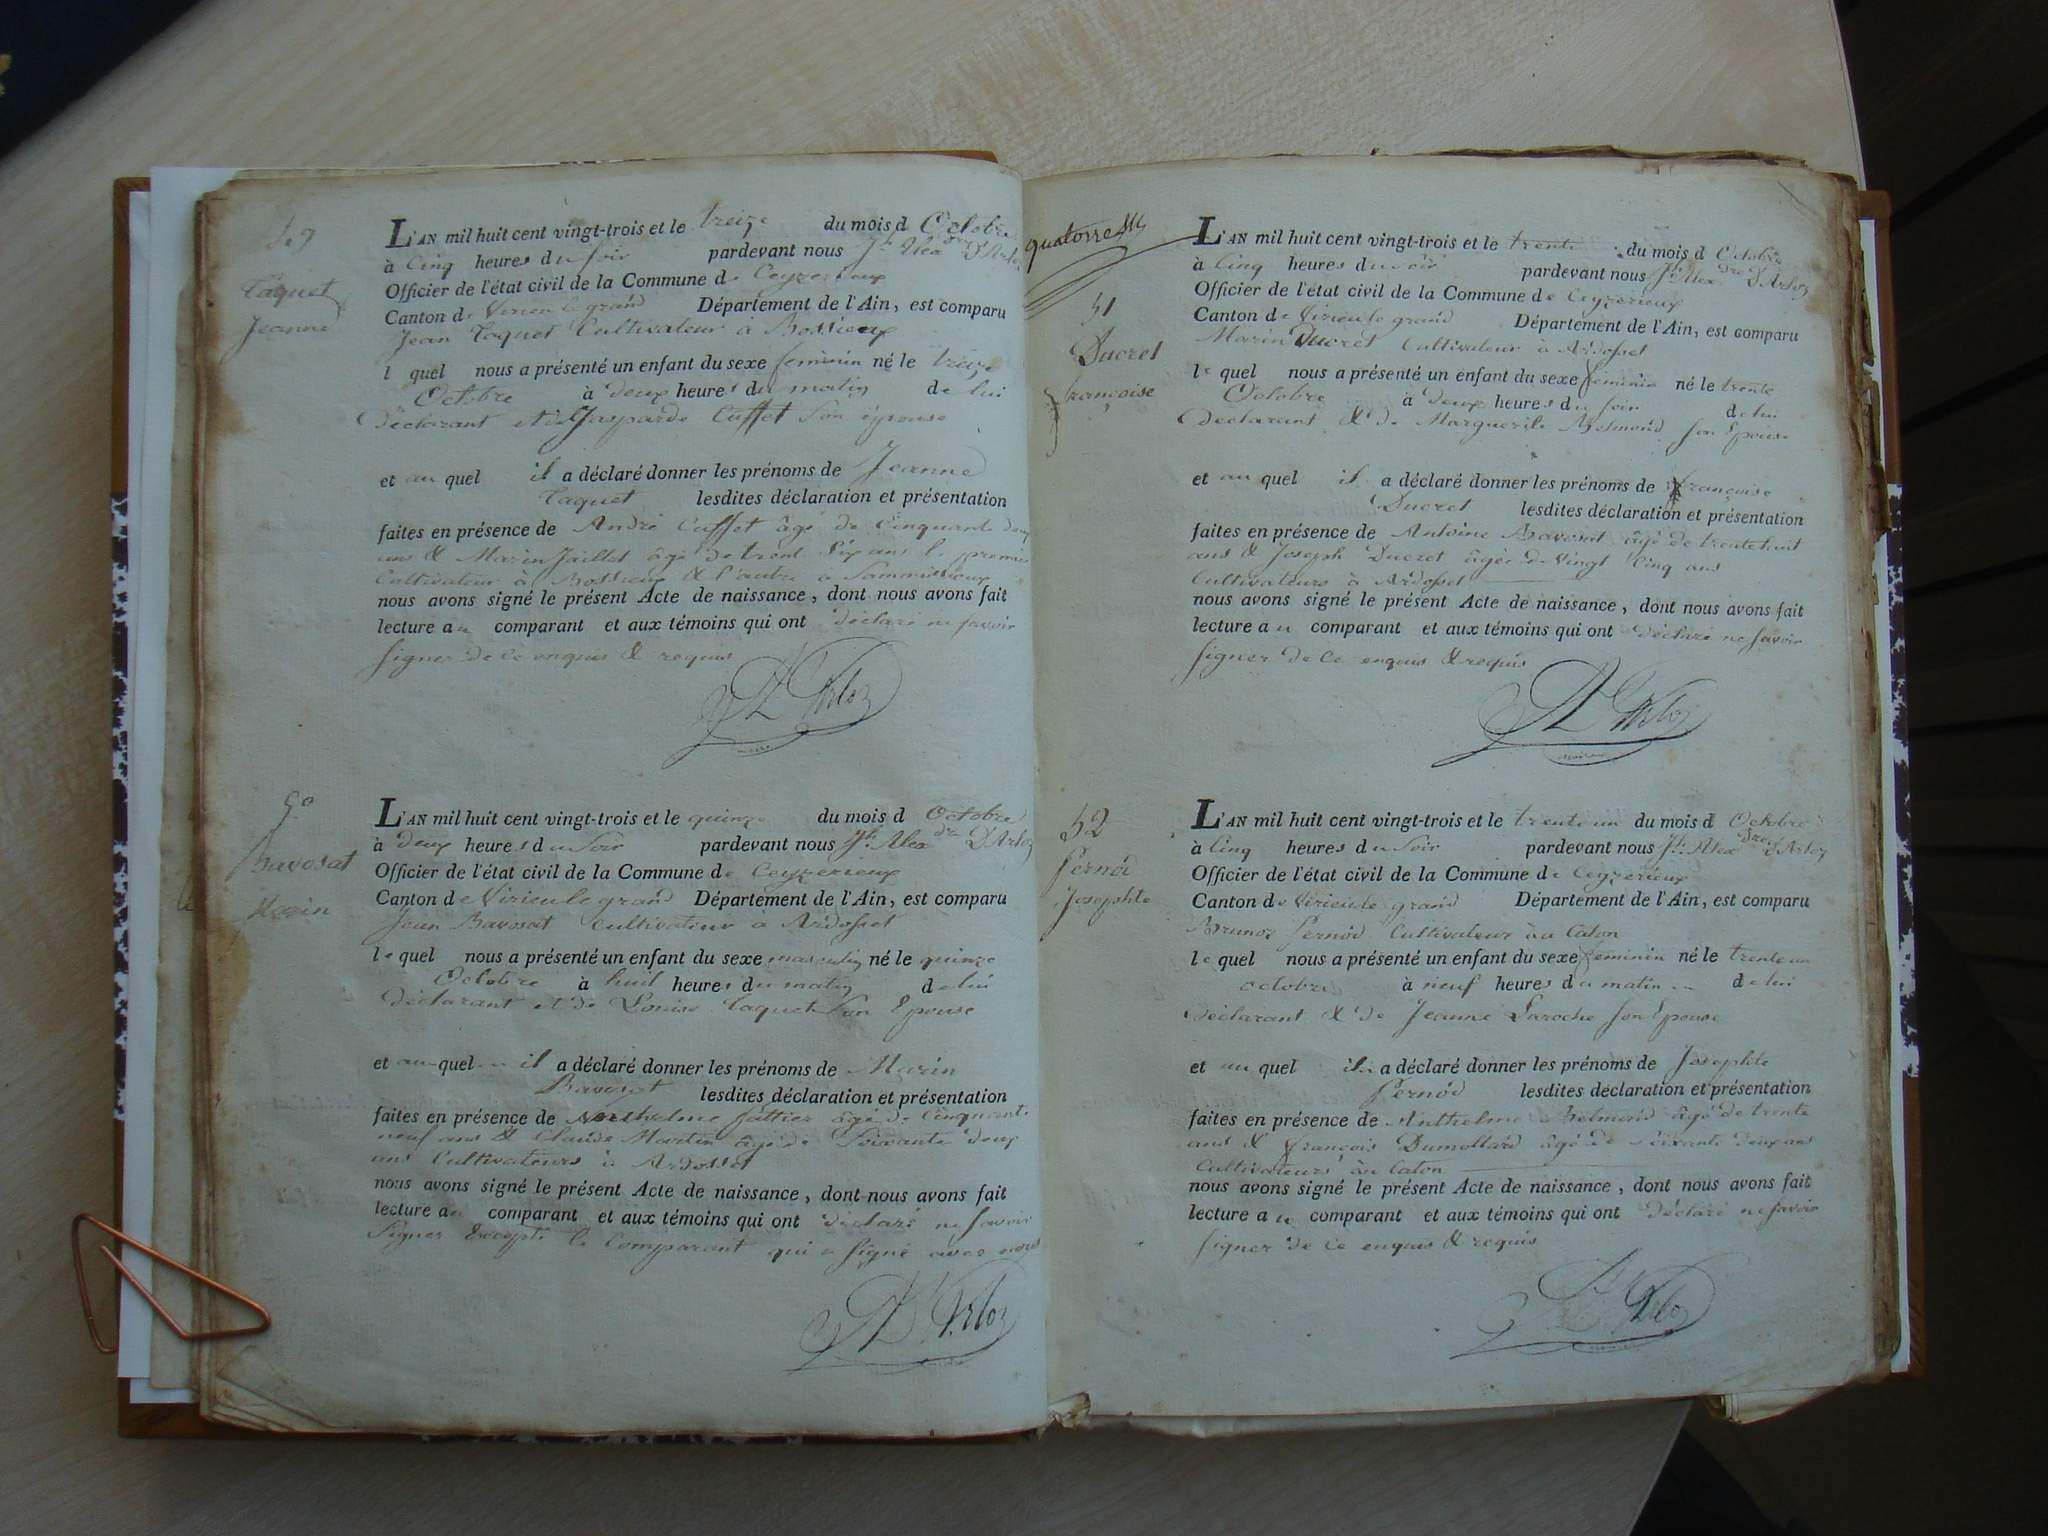 49
Taquet
Jeanne
L'AN mil huit cent vingt-trois et le treize du mois d Octobre
à Cinq heures du soir pardevant nous Jh Alexdre D'Arloz
Officier de l'état civil de la Commune de Ceyzerieux
Canton de Virieu le grand Département de l'Ain, est comparu
Jean Taquet Cultivateur à Bossieux
l quel nous a présenté un enfant du sexe feminin né le treize
Octobre à deux heures du matin de lui
déclarant et de Gasparde Cuffet son épouse
et au quel il a déclaré donner les prénoms de Jeanne
Taquet lesdites déclaration et présentation
faites en présence de André Cuffet âgé de Cinquante deux
ans & Marin Jaillet âgé de trent Six ans le premier
Cultivateur à Bossieux & l'autre à Sammissieux
nous avons signé le présent Acte de naissance, dont nous avons fait
lecture au comparant et aux témoins qui ont déclaré ne savoir
signer de ce enquis & requis
D'Arloz
50
Bavosat
Marin
L'AN mil huit cent vingt-trois et le quinze du mois d Octobre
à deux heures du Soir pardevant nous Jh Alexdre D'Arloz
Officier de l'état civil de la Commune de Ceyzerieux
Canton de Virieu le grand Département de l'Ain, est comparu
Jean Bavosat Cultivateur à Ardosset
le quel nous a présenté un enfant du sexe masculin né le quinze
Octobre à huit heures du matin de lui
déclarant et de Louise Taquet son Epouse
et au quel il a déclaré donner les prénoms de Marin
Bavosat lesdites déclaration et présentation
faites en présence de âgé de Cinquante
neuf ans & Claude Martin âgé de Soixante deux
ans Cultivateurs à Ardosset
nous avons signé le présent Acte de naissance, dont nous avons fait
lecture au comparant et aux témoins qui ont déclaré ne savoir
Signer Excepté le Comparant qui a signé avec nous
D'Arloz
quatorze
51
Ducret
françoise
L'AN mil huit cent vingt-trois et le trente du mois d Octobre
à Cinq heures du soir pardevant nous Jh Alexdre D'Arloz
Officier de l'état civil de la Commune de Ceyzerieux
Canton de Virieu le grand Département de l'Ain, est comparu
Marin Ducret Cultivateur à Ardosset
le quel nous a présenté un enfant du sexe feminin né le trente
Octobre à deux heures du soir de lui
Déclarant & de Marguerite Belmond son Epouse
et au quel il a déclaré donner les prénoms de françoise
Ducret lesdites déclaration et présentation
faites en présence de Antoine Bavosat âgé de trentehuit
ans & Joseph Ducret âgé de Vingt Cinq ans
Cultivateurs à Ardosset
nous avons signé le présent Acte de naissance, dont nous avons fait
lecture au comparant et aux témoins qui ont déclaré ne savoir
signer de Ce enquis & requis
D'Arloz
52
Pernod
Josephte
L'AN mil huit cent vingt-trois et le trente un du mois d Octobre
à Cinq heures du Soir pardevant nous Jh Alexdre D'Arloz
Officier de l'état civil de la Commune de Ceyzerieux
Canton de Virieu le grand Département de l'Ain, est comparu
Brunoz Pernod Cultivateur au Caton
le quel nous a présenté un enfant du sexe feminin né le trente un
octobre à neuf heures du matin de lui
déclarant & de Jeanne Laroche son Epouse
et au quel il a déclaré donner les prénoms de Josephte
Pernod lesdites déclaration et présentation
faites en présence de Anthelme Belmond âgé de trente
ans & françois Dumollard âgé de soixante deux ans
Cultivateurs au Caton
nous avons signé le présent Acte de naissance, dont nous avons fait
lecture au comparant et aux témoins qui ont déclaré ne savoir
signer de ce enquis & requis
D'Arloz